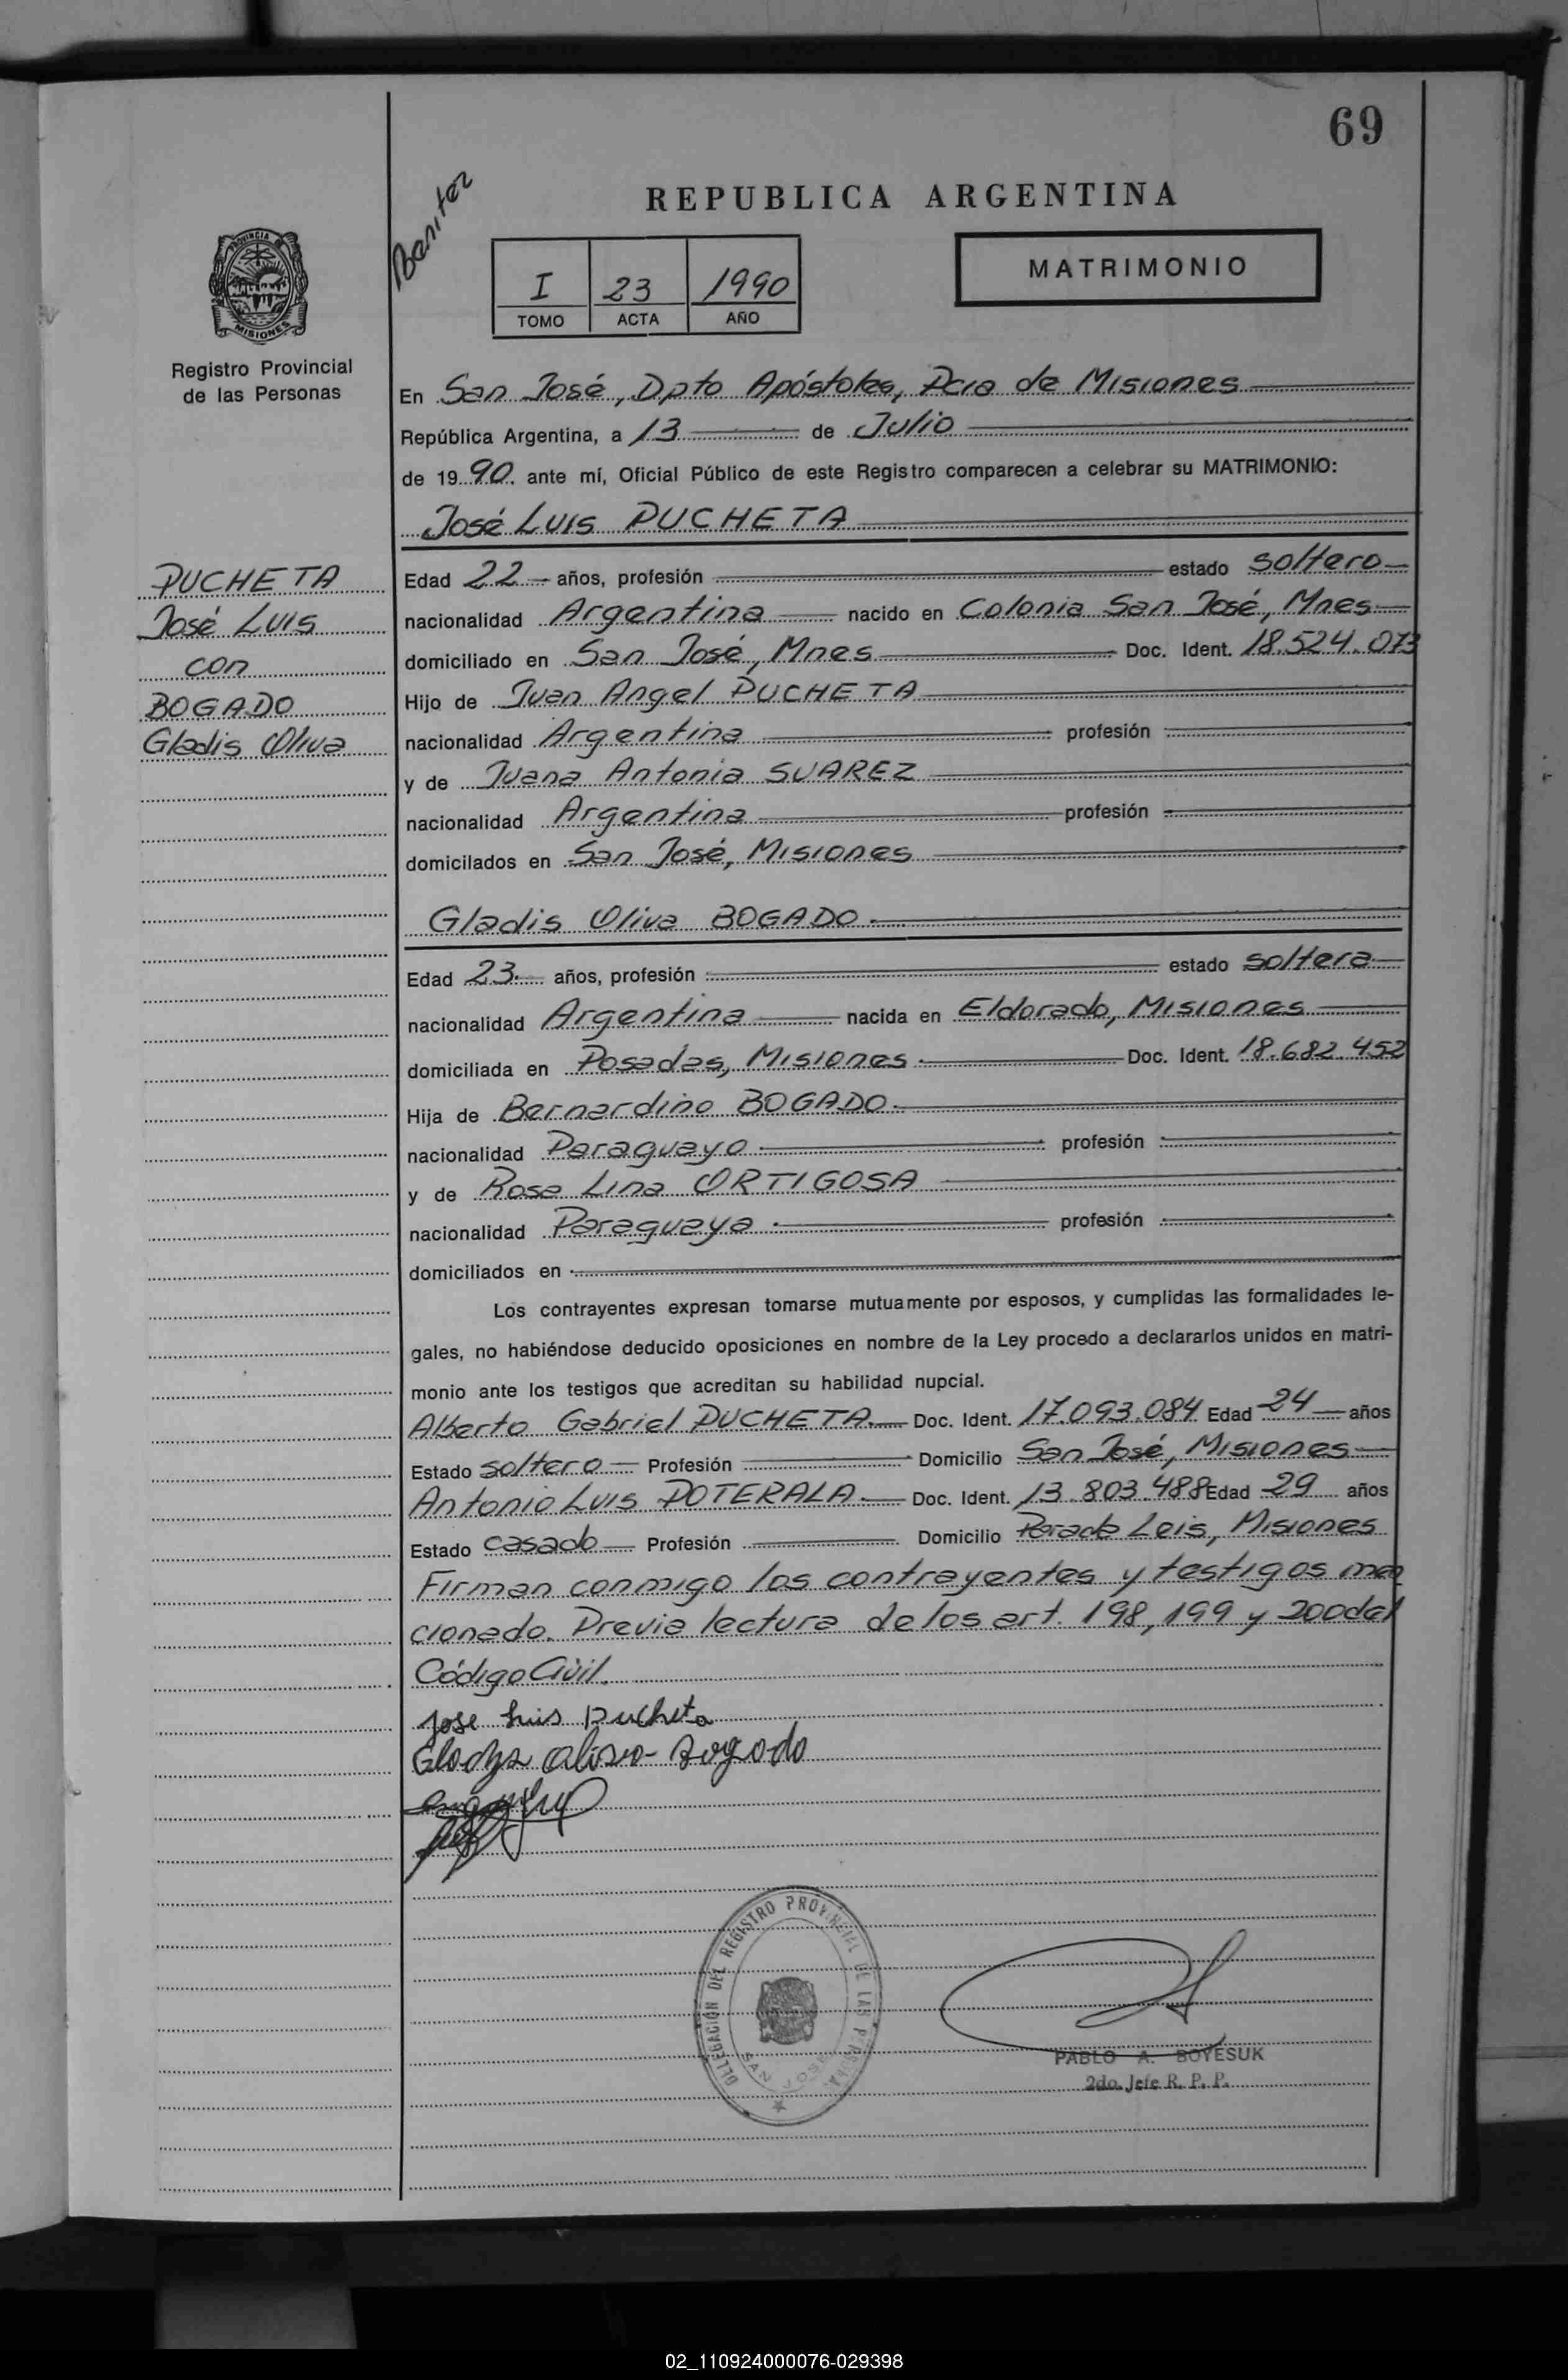 69
Benitez
REPUBLICA ARGENTINA
I 23 1990
TOMO ACTA AÑO
MATRIMONIO
PROVINCIA
MISIONES
Registro Provincial
de las Personas
En San José, Dpto Apóstoles, Pcia de Misiones
República Argentina, a 13 de Julio
de 1990. ante mí, Oficial Público de este Registro comparecen a celebrar su MATRIMONIO:
José Luis PUCHETA
PUCHETA
José Luis
con
BOGADO
Gladis Oliva
Edad 22 años, profesión estado soltero
nacionalidad Argentina nacido en Colonia San José, Mnes
domiciliado en San José, Mnes Doc. Ident. 18.524.073
Hijo de Juan Angel PUCHETA
nacionalidad Argentina profesión
y de Juana Antonia SUAREZ
nacionalidad Argentina profesión
domicilados en San José, Misiones
Gladis Oliva BOGADO
Edad 23 años, profesión estado soltera
nacionalidad Argentina nacida en Eldorado, Misiones
domiciliada en Posadas, Misiones Doc. Ident. 18.682.452
Hija de Bernardino BOGADO
nacionalidad Paraguayo profesión
y de Rosa Lina ORTIGOSA
nacionalidad Paraguaya profesión
domiciliados en
Los contrayentes expresan tomarse mutuamente por esposos, y cumplidas las formalidades le-
gales, no habiéndose deducido oposiciones en nombre de la Ley procedo a declararlos unidos en matri-
monio ante los testigos que acreditan su habilidad nupcial.
Alberto Gabriel PUCHETA Doc. Ident. 17.093.084 Edad 24 años
Estado soltero Profesión Domicilio San José, Misiones
Antonio Luis POTERALA Doc. Ident. 13.803.488 Edad 29 años
Estado casado Profesión Domicilio Parada Leis, Misiones
Firman conmigo los contrayentes y testigos men
cionado. Previa lectura de los art. 198, 199 y 200 del
Código Civil.
Jose Luis Pucheta
Gladys Oliva Bogado
DELEGACIÓN DEL REGISTRO PROVINCIAL DE LAS PERSONAS
SAN JOSE
PABLO A. BOYESUK
2do. Jefe R. P. P.
02_110924000076-029398